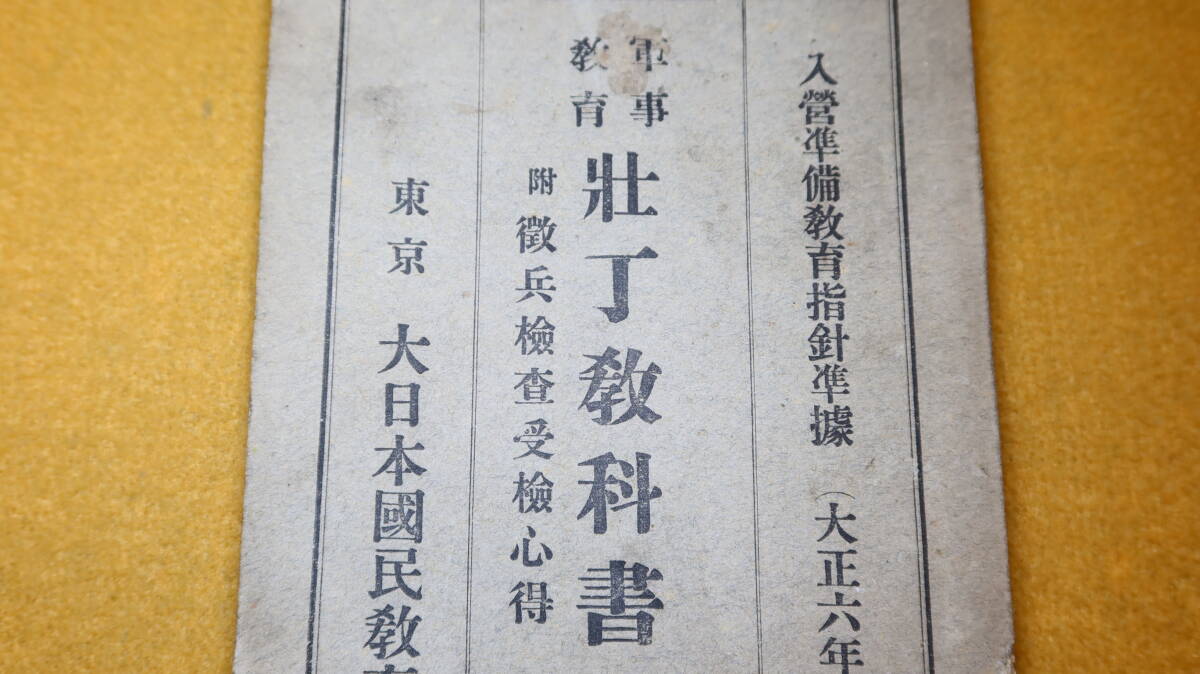 入營準備教育指針準據 （大正六年
軍事
教育
壯丁教科書
附 徵兵檢查受檢心得
東京 大日本國民教育